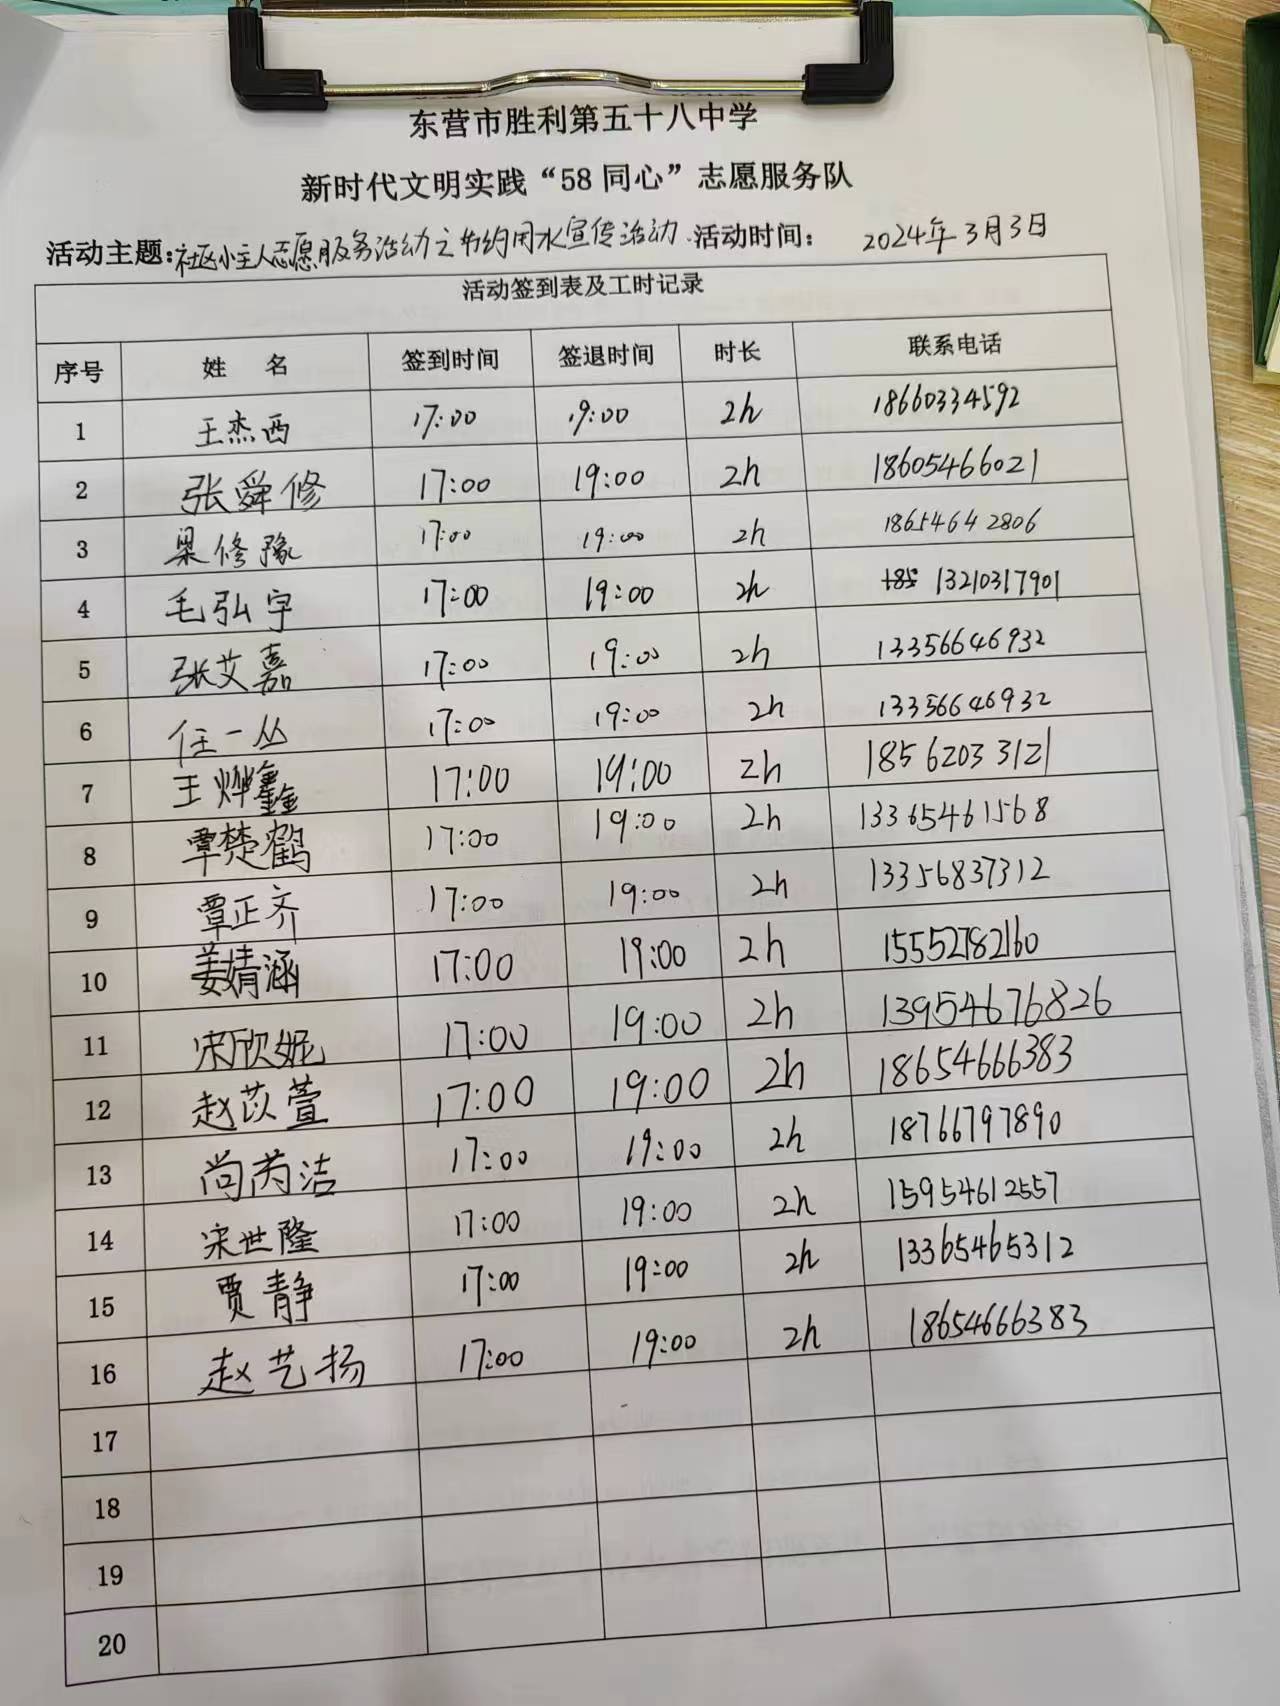 东营市胜利第五十八中学
新时代文明实践“58 同心”志愿服务队
活动主题:社区小主人志愿服务活动之节约用水宣传活动. 活动时间: 2024年3月3日
活动签到表及工时记录
序号 姓 名 签到时间 签退时间 时长 联系电话
1 王杰西 17:00 19:00 2h 18660334592
2 张舜修 17:00 19:00 2h 18605466021
3 梁修豫 17:00 19:00 2h 18654642806
4 毛弘宇 17:00 19:00 2h 13210317901
5 张艾嘉 17:00 19:00 2h 13356646932
6 任一丛 17:00 19:00 2h 13356646932
7 王烨鑫 17:00 19:00 2h 18562033121
8 覃楚鹤 17:00 19:00 2h 13365461568
9 覃正齐 17:00 19:00 2h 13356837312
10 姜婧涵 17:00 19:00 2h 15552782160
11 宋欣妮 17:00 19:00 2h 13954676826
12 赵苡萱 17:00 19:00 2h 18654666383
13 尚芮洁 17:00 19:00 2h 18766797890
14 宋世隆 17:00 19:00 2h 15954612557
15 贾静 17:00 19:00 2h 13365465312
16 赵艺扬 17:00 19:00 2h 18654666383
17
18
19
20